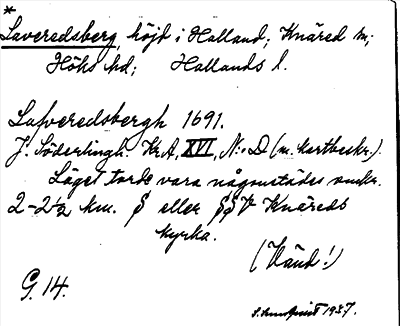 *
Laveredsberg, höjd i Halland; Knäred sn;
Höks hd; Hallands l.
Lafveredsbergh 1691.
J. Söderlingh. KrA, XVI, N:o D (m. kartbeskr.).
Läget torde vara någonstädes omkr.
2-2½ km. S eller SSV Knäreds
kyrka.
(Vänd!)
G. 14.
1937.